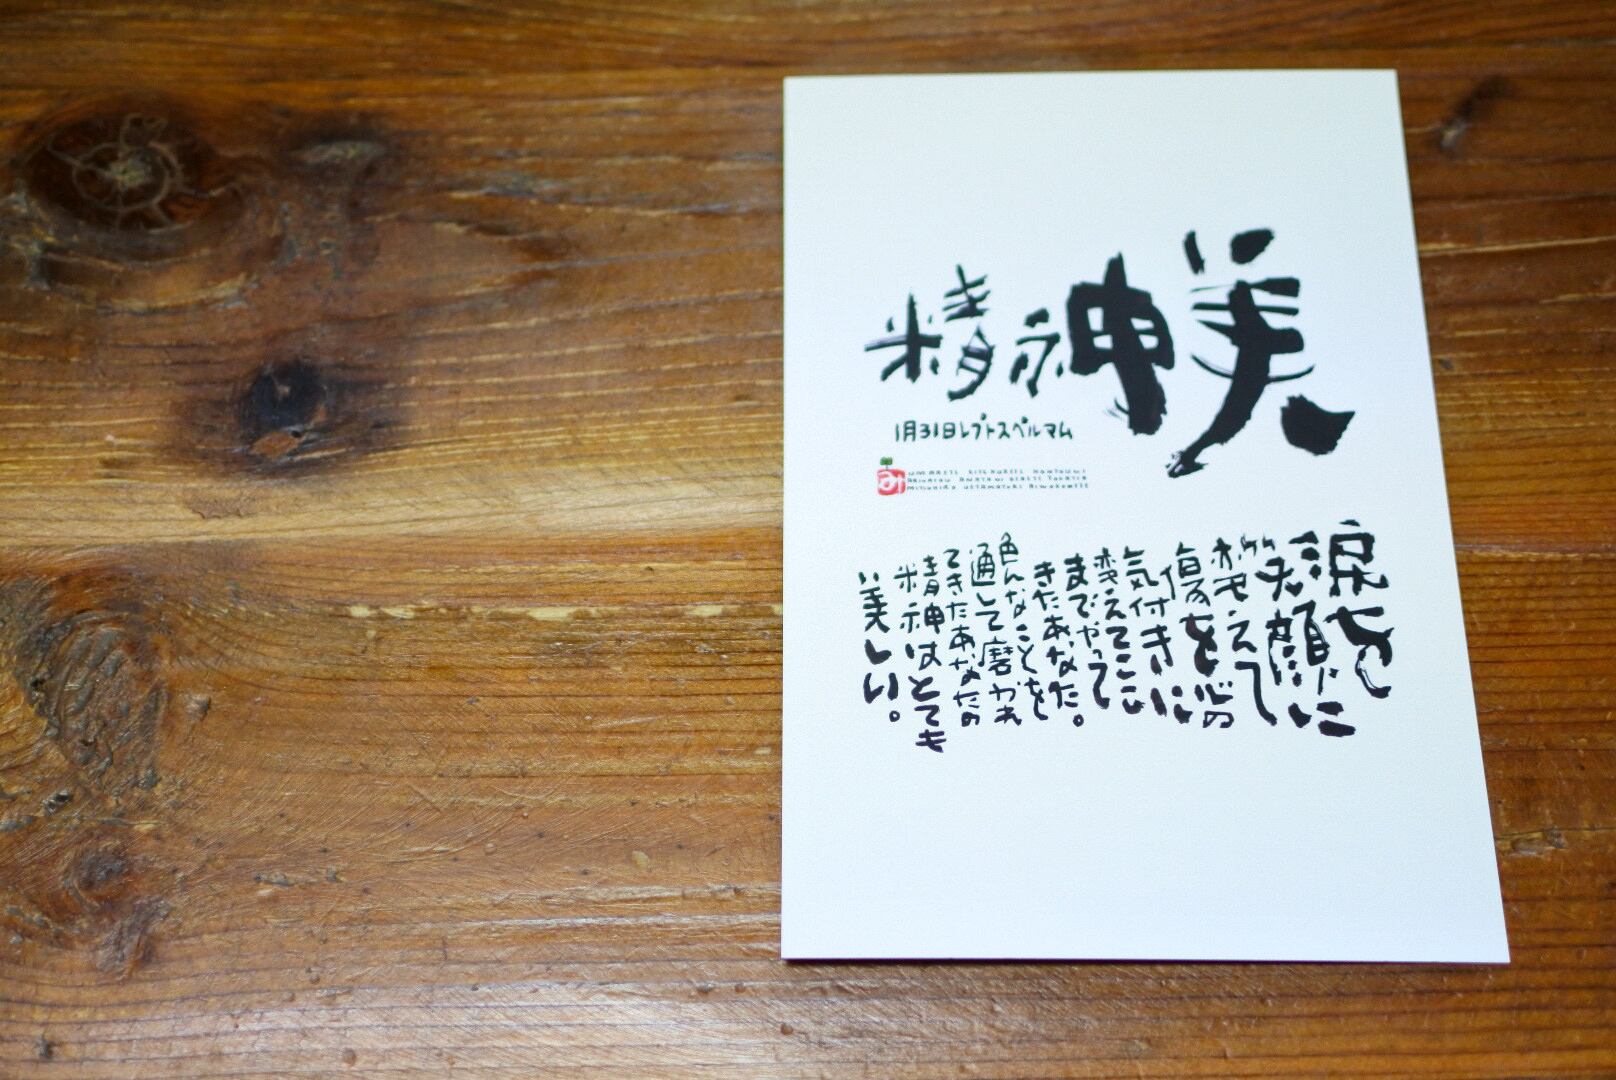 精神美
1月31日レプトスペルマム
涙を
笑顔に
変えて
傷を心の
気付きに
変えてここ
までやって
きたあなた。
色んなことを
通して磨かれ
てきたあなたの
精神はとても
美しい。